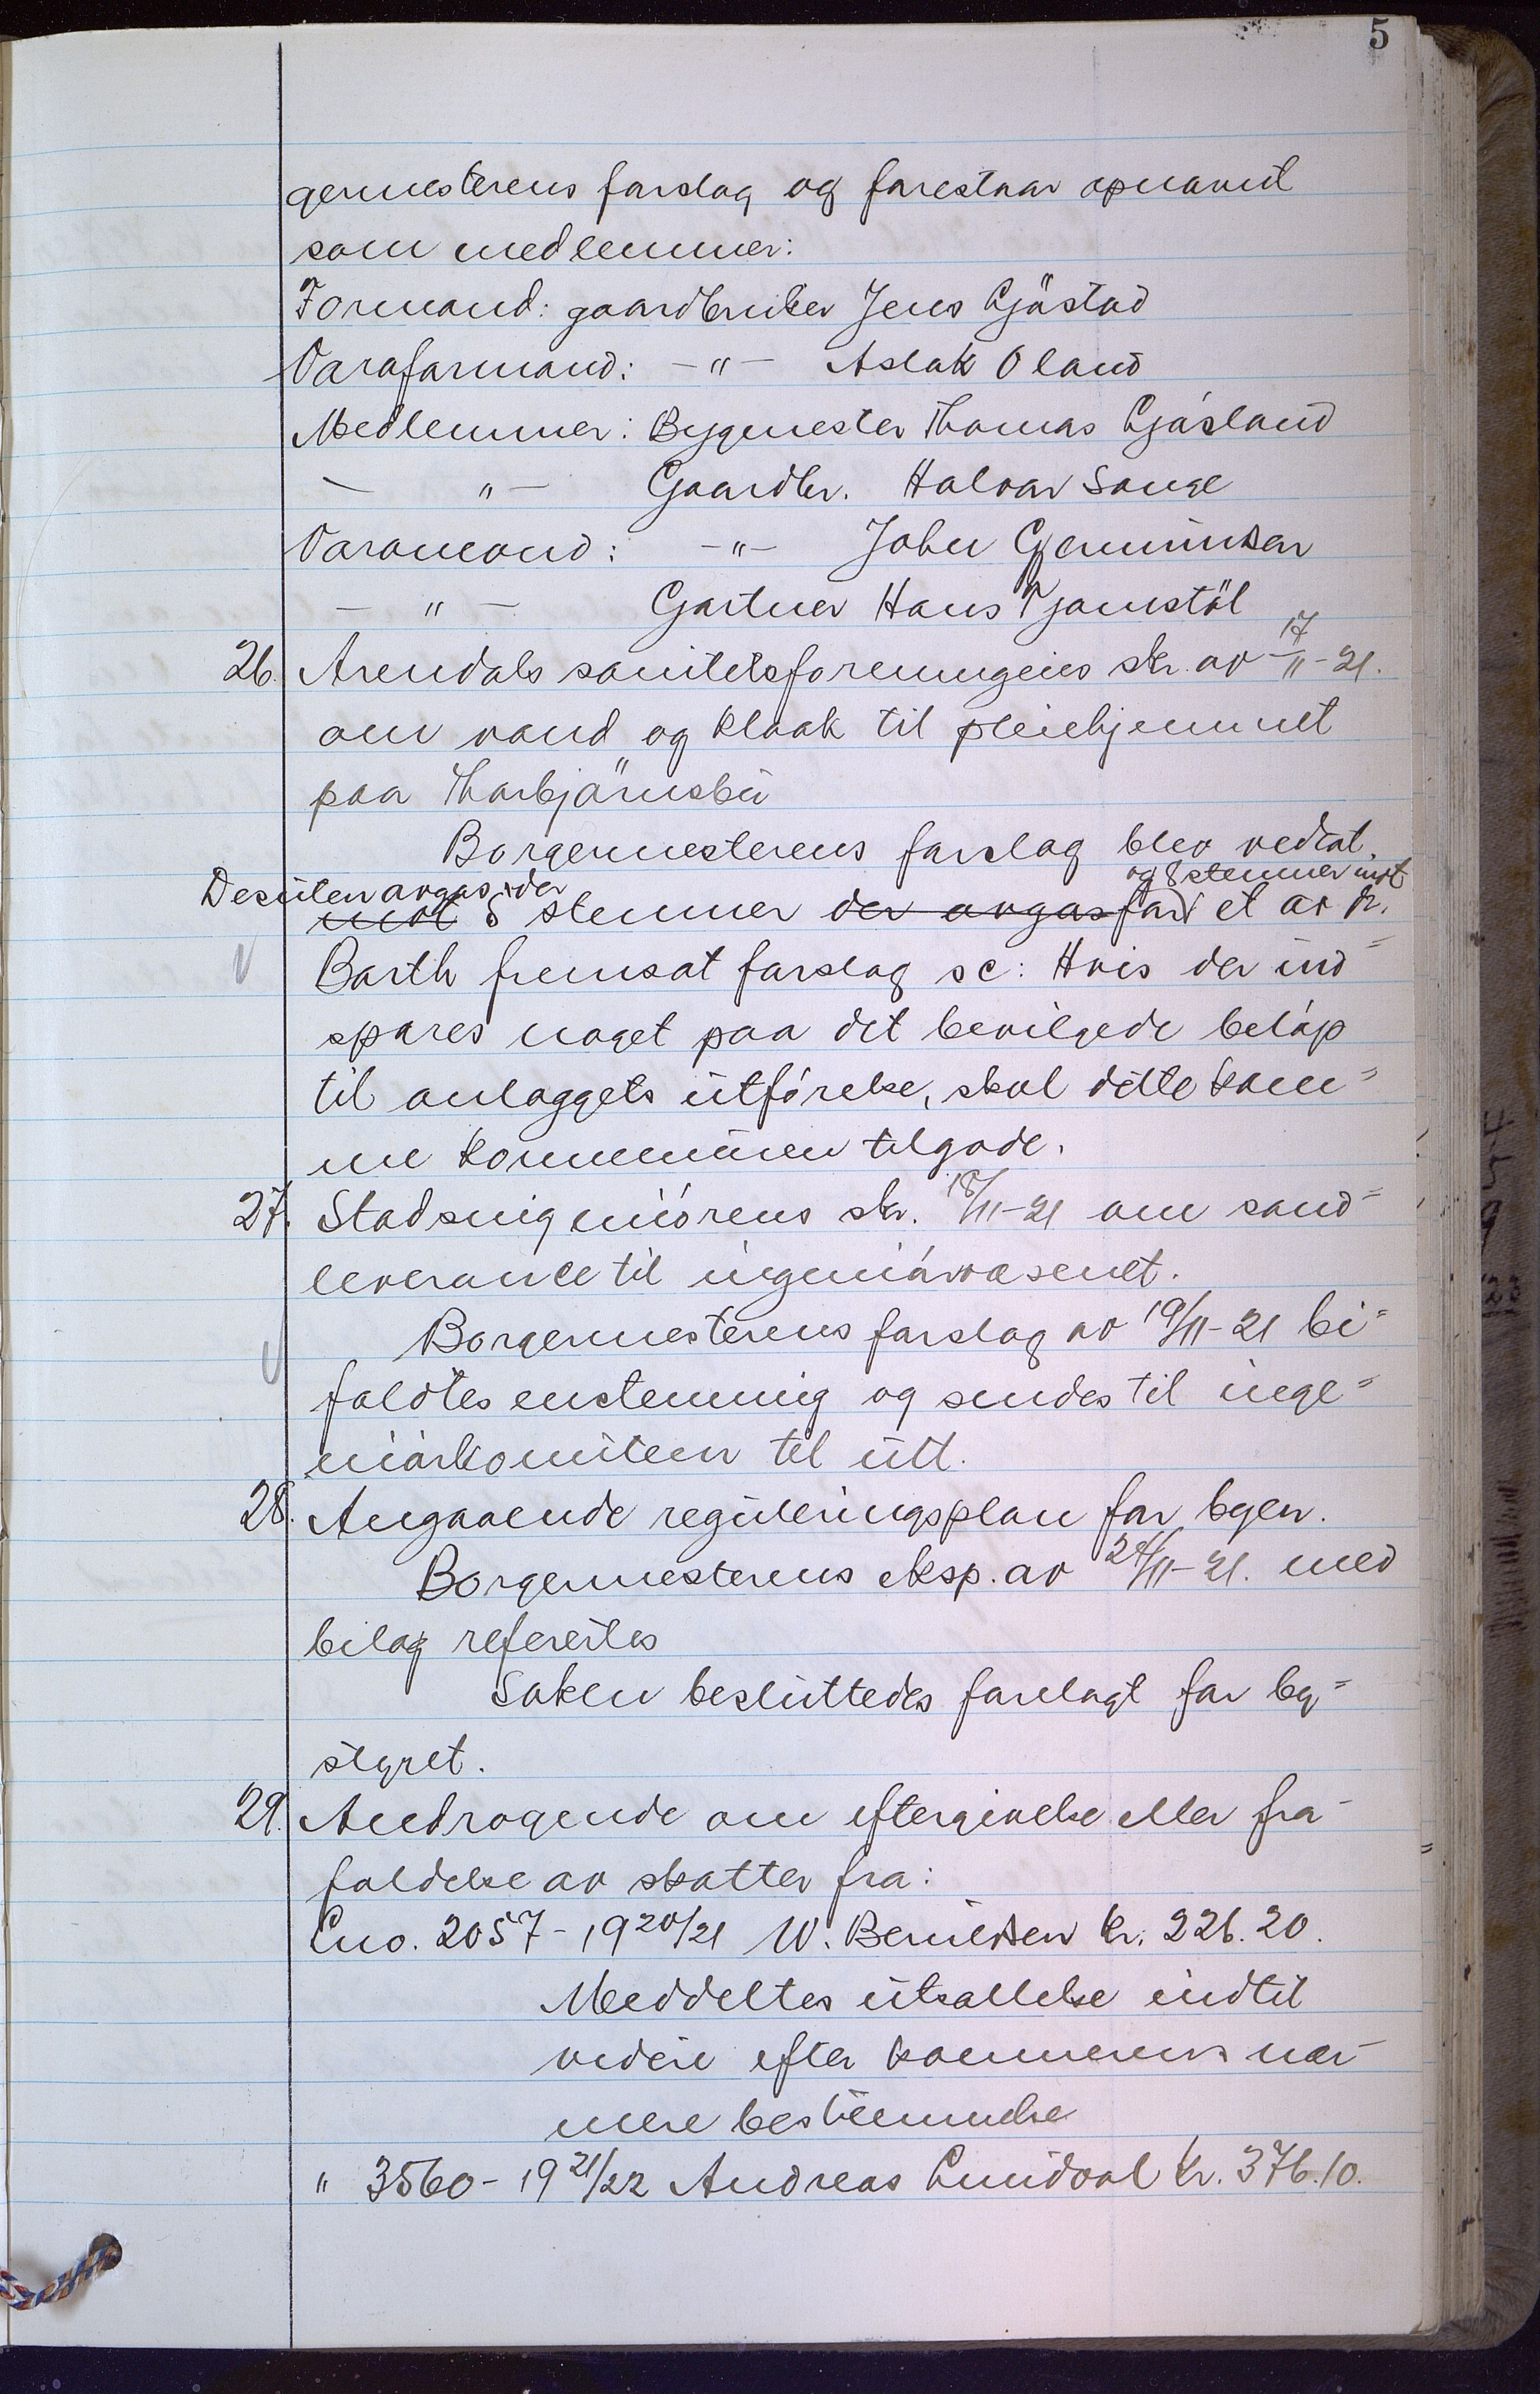 5
germesterens forslag og forestaar opnævnt
som medlemmer:
Formand: gaardbruker Jens Gjöstad
Varaformand: -"- Aslak Oland
Medlemmer: Bygmester Thomas Gjósland
- " - Gaardbr. Halvor Songe
Varamænd: -"- John Gjennindsen
- " - Gartner Hans Tjomstöl
26. Arendals sanitetsforenings skr. av 17/11-21.
om vand og kloak til pleiehjemmet
paa Thorbjörnsbu
Borgermesterens forslag blev vedtat.
Desuten avgas der og 8 stemmer mot
mot 8 stemmer der avgas for et av dr.
Barth fremsat forslag sc: Hvis der ind=
spares noget paa det bevilgede belóp
til anlæggets utfórelse, skal dette kom=
me kommunen tilgode.
27. Stadsingeniórens skr. 18/11-21 om sand=
leverance til ingeniórvæsenet.
Borgermesterens forslag av 19/11-21 bi=
faldtes enstemmig og sendes til inge=
niórkomiteen til utt.
28. Angaaende reguleringsplan for byen.
Borgermesterens eksp. av 24/11-21. med
bilag refereites
Saken besluttedes forelagt for by=
styret.
29. Andragende om eftergivelse eller fra-
faldelse av skatter fra:
Lno. 2057-1920/21 W. Beruldsen kr. 226.20.
Meddeltes utsættelse indtil
videre efter kæmnerens nær-
mere bestemmelse
" 3560-1921/22 Andreas Lundvol kr. 376.10.